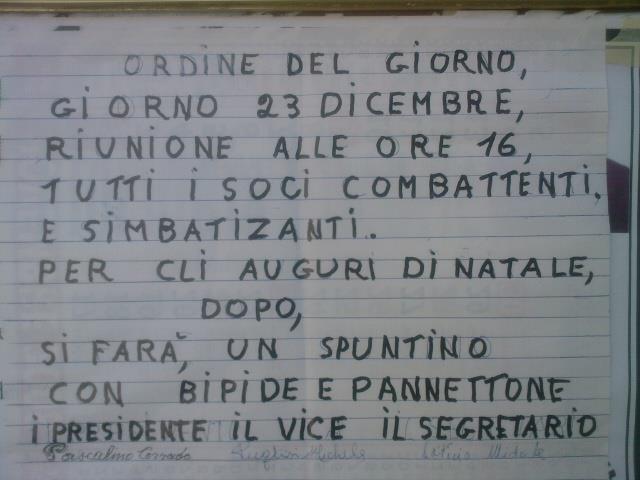 ORDINE DEL GIORNO,
GIORNO 23 DICEMBRE,
RIUNIONE ALLE ORE 16,
TUTTI I SOCI COMBATTENTI,
E SIMBATIZANTI.
PER CLI AUGURI DI NATALE,
DOPO,
SI FARÀ, UN SPUNTINO
CON BIPIDE E PANNETTONE
I PRESIDENTE IL VICE IL SEGRETARIO
Pascalino Corrado Michele